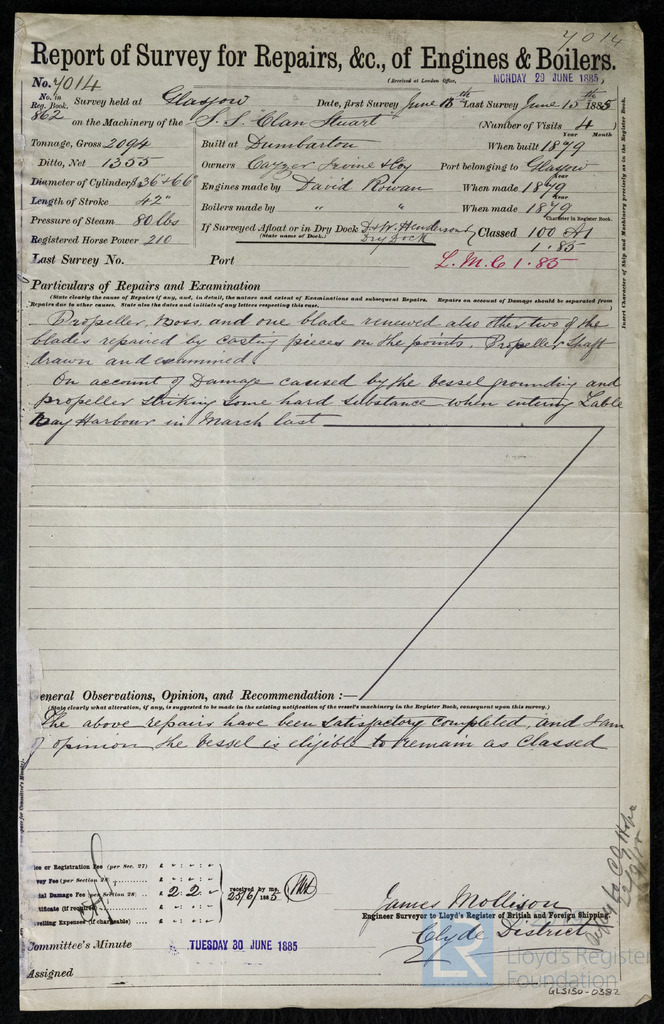 7014
Report of Survey for Repairs, &c., of Engines & Boilers.
(Received at London Office, MONDAY 29 JUNE 1885)
No. 7014
No. in Reg. Book. 862
Survey held at Glasgow Date, first Survey June 13th Last Survey June 15th 1885
on the Machinery of the S.S. "Clan Stuart" (Number of Visits 4)
Tonnage, Gross 2094 Built at Dumbarton When built 1879 Year Month
Ditto, Net 1355 Owners Cayzer Irvine & Coy Port belonging to Glasgow
Diameter of Cylinders 36" & 66" Engines made by David Rowan When made 1879
Length of Stroke 42" Boilers made by " " When made 1879
Pressure of Steam 80 lbs If Surveyed Afloat or in Dry Dock D & W. Henderson's Classed 100 A1
(State name of Dock.) Dry Dock Character in Register Book.
Registered Horse Power 210 1.85
Last Survey No. Port L.M.C. 1.85
Insert Character of Ship and Machinery precisely as in the Register Book.
Particulars of Repairs and Examination
(State clearly the cause of Repairs if any, and, in detail, the nature and extent of Examinations and subsequent Repairs. Repairs on account of Damage should be separated from
Repairs due to other causes. State also the dates and initials of any letters respecting this case.)
Propeller, Boss, and one blade renewed also other two of the
blades repaired by casting pieces on the points. Propeller Shaft
drawn and examined.
On account of Damage caused by the vessel grounding and
propeller striking some hard substance when entering Table
Bay Harbour in March last
General Observations, Opinion, and Recommendation :—
(State clearly what alteration, if any, is suggested to be made in the existing notification of the vessel's machinery in the Register Book, consequent upon this survey.)
The above repairs have been satisfactory completed, and I am
of opinion the vessel is eligible to remain as Classed
ee or Registration Fee (per Sec. 27) £
vey Fee (per Section 28) £
ial Damage Fee (per Section 28) £ 2 . 2 . -
received by me, 25/6/1885
tificate (if required) £
velling Expenses (if chargeable) £
James Mollison
Engineer Surveyor to Lloyd's Register of British and Foreign Shipping.
Clyde District
Committee's Minute TUESDAY 30 JUNE 1885
Assigned
LR
Lloyd's Register
Foundation
GLS150-0382